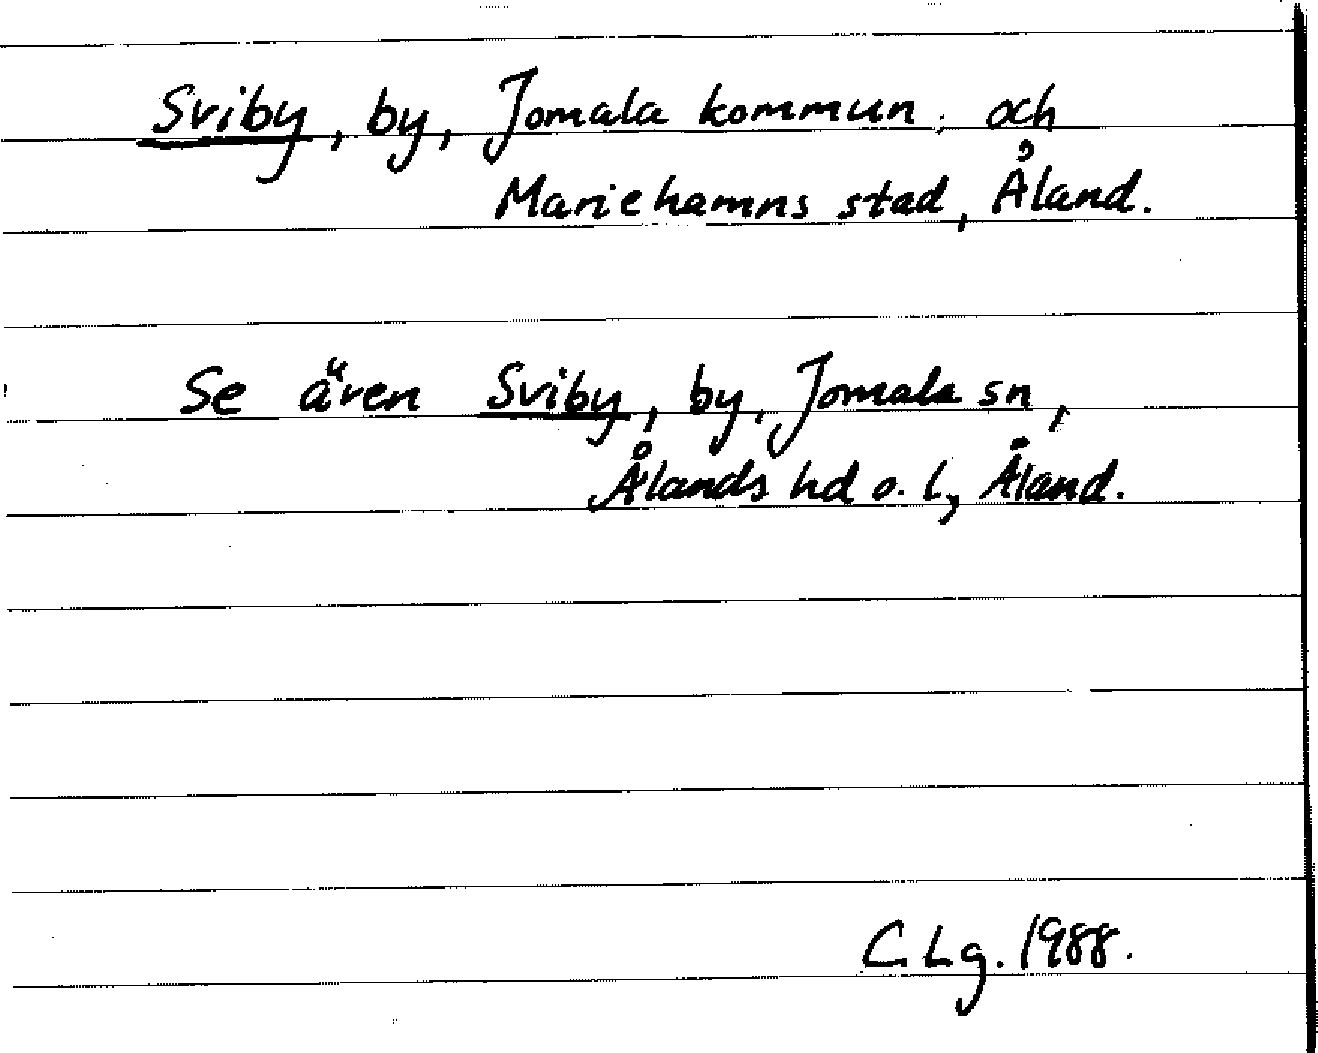 Sviby, by, Jomala kommun, och
Mariehamns stad, Åland.
Se även Sviby, by, Jomala sn,
Ålands hd o. l, Åland.
C Lg. 1988.